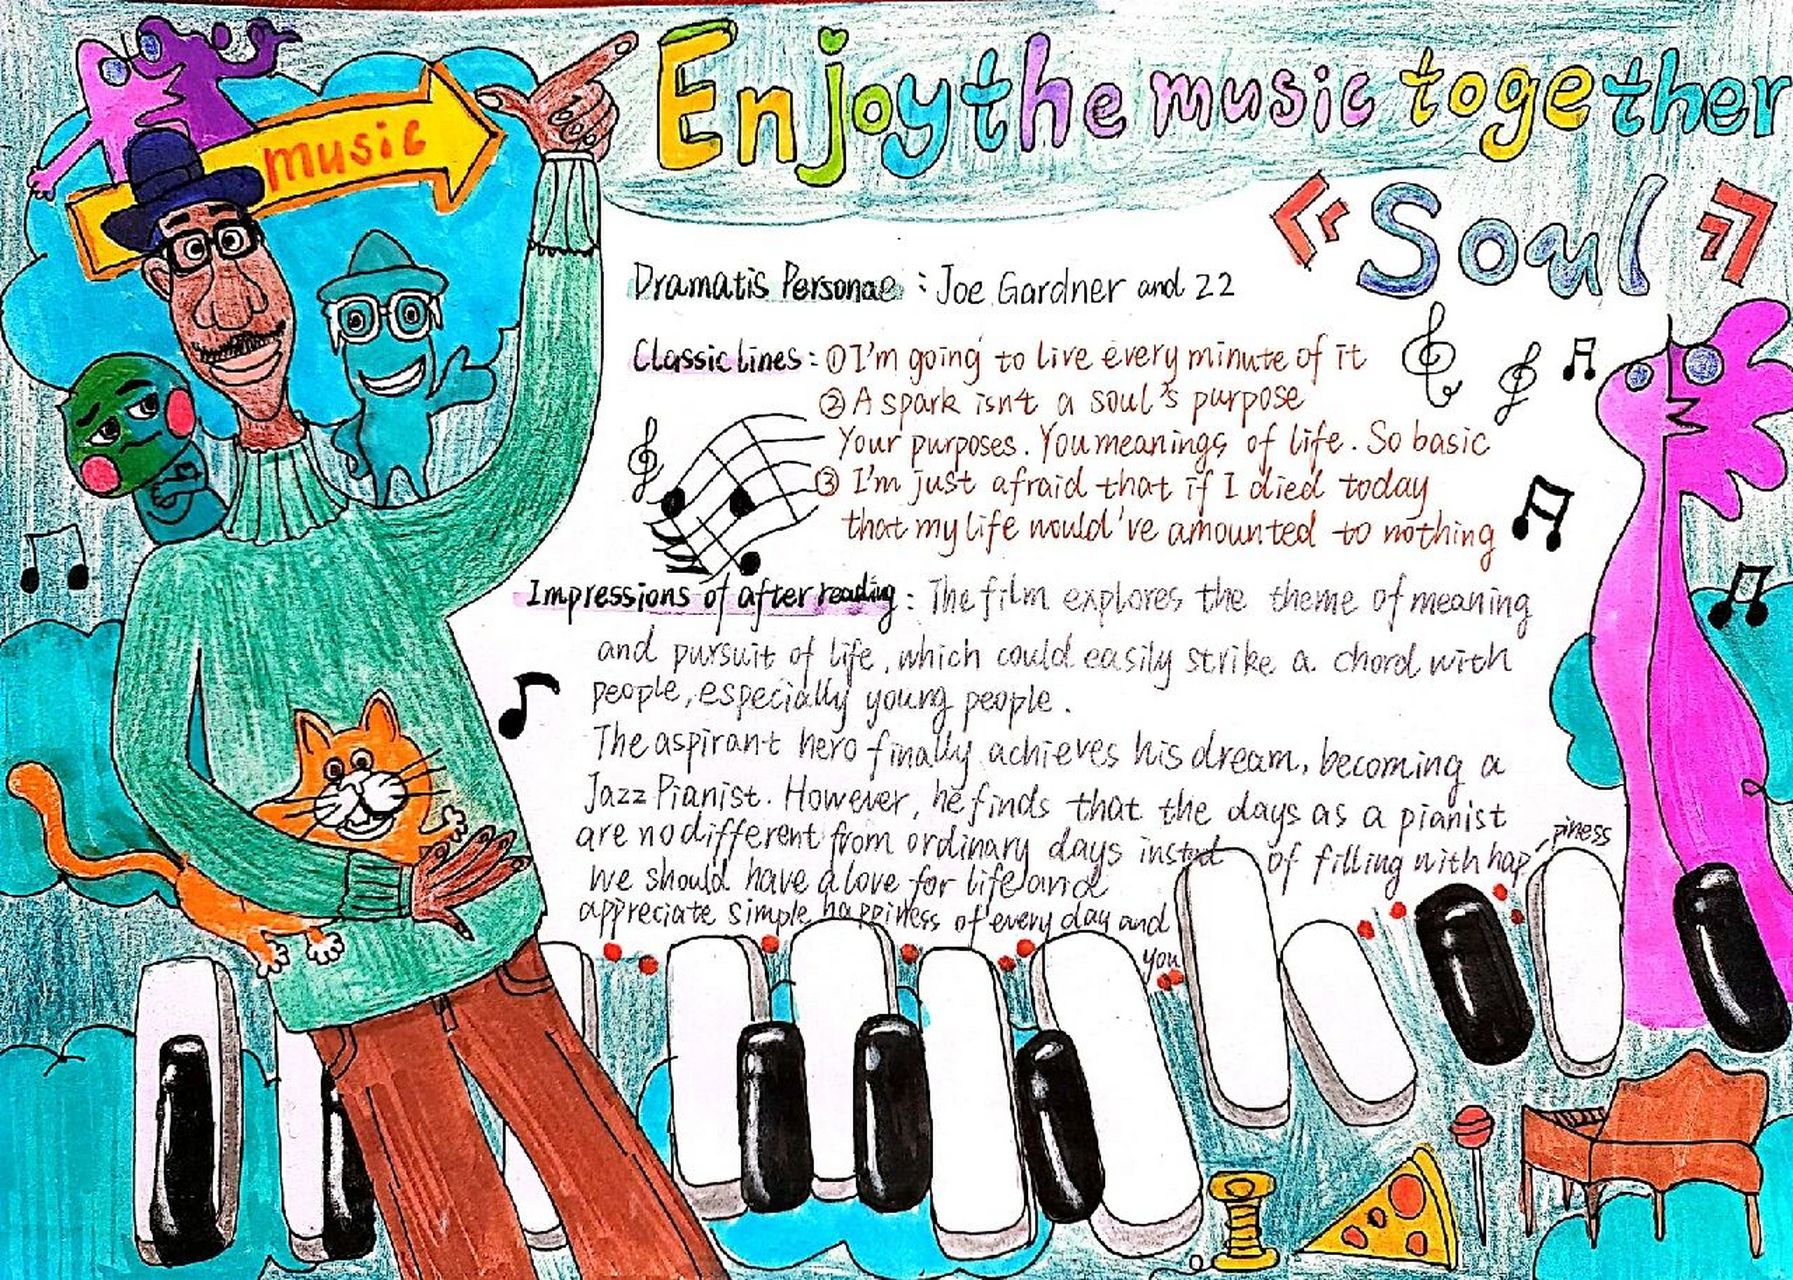 music
Enjoy the music together
《Soul》
Dramatis Personae : Joe Gardner and 22
Classic lines : ① I'm going to live every minute of it
② A spark isn't a soul's purpose
Your purposes. You meanings of life. So basic
③ I'm just afraid that if I died today
that my life would've amounted to nothing
Impressions of after reading : The film explores the theme of meaning
and pursuit of life, which could easily strike a chord with
people, especially young people.
The aspirant hero finally achieves his dream, becoming a
Jazz Pianist. However, he finds that the days as a pianist
are no different from ordinary days insted of filling with happiness
We should have a love for life and
appreciate simple happiness of every day and
you